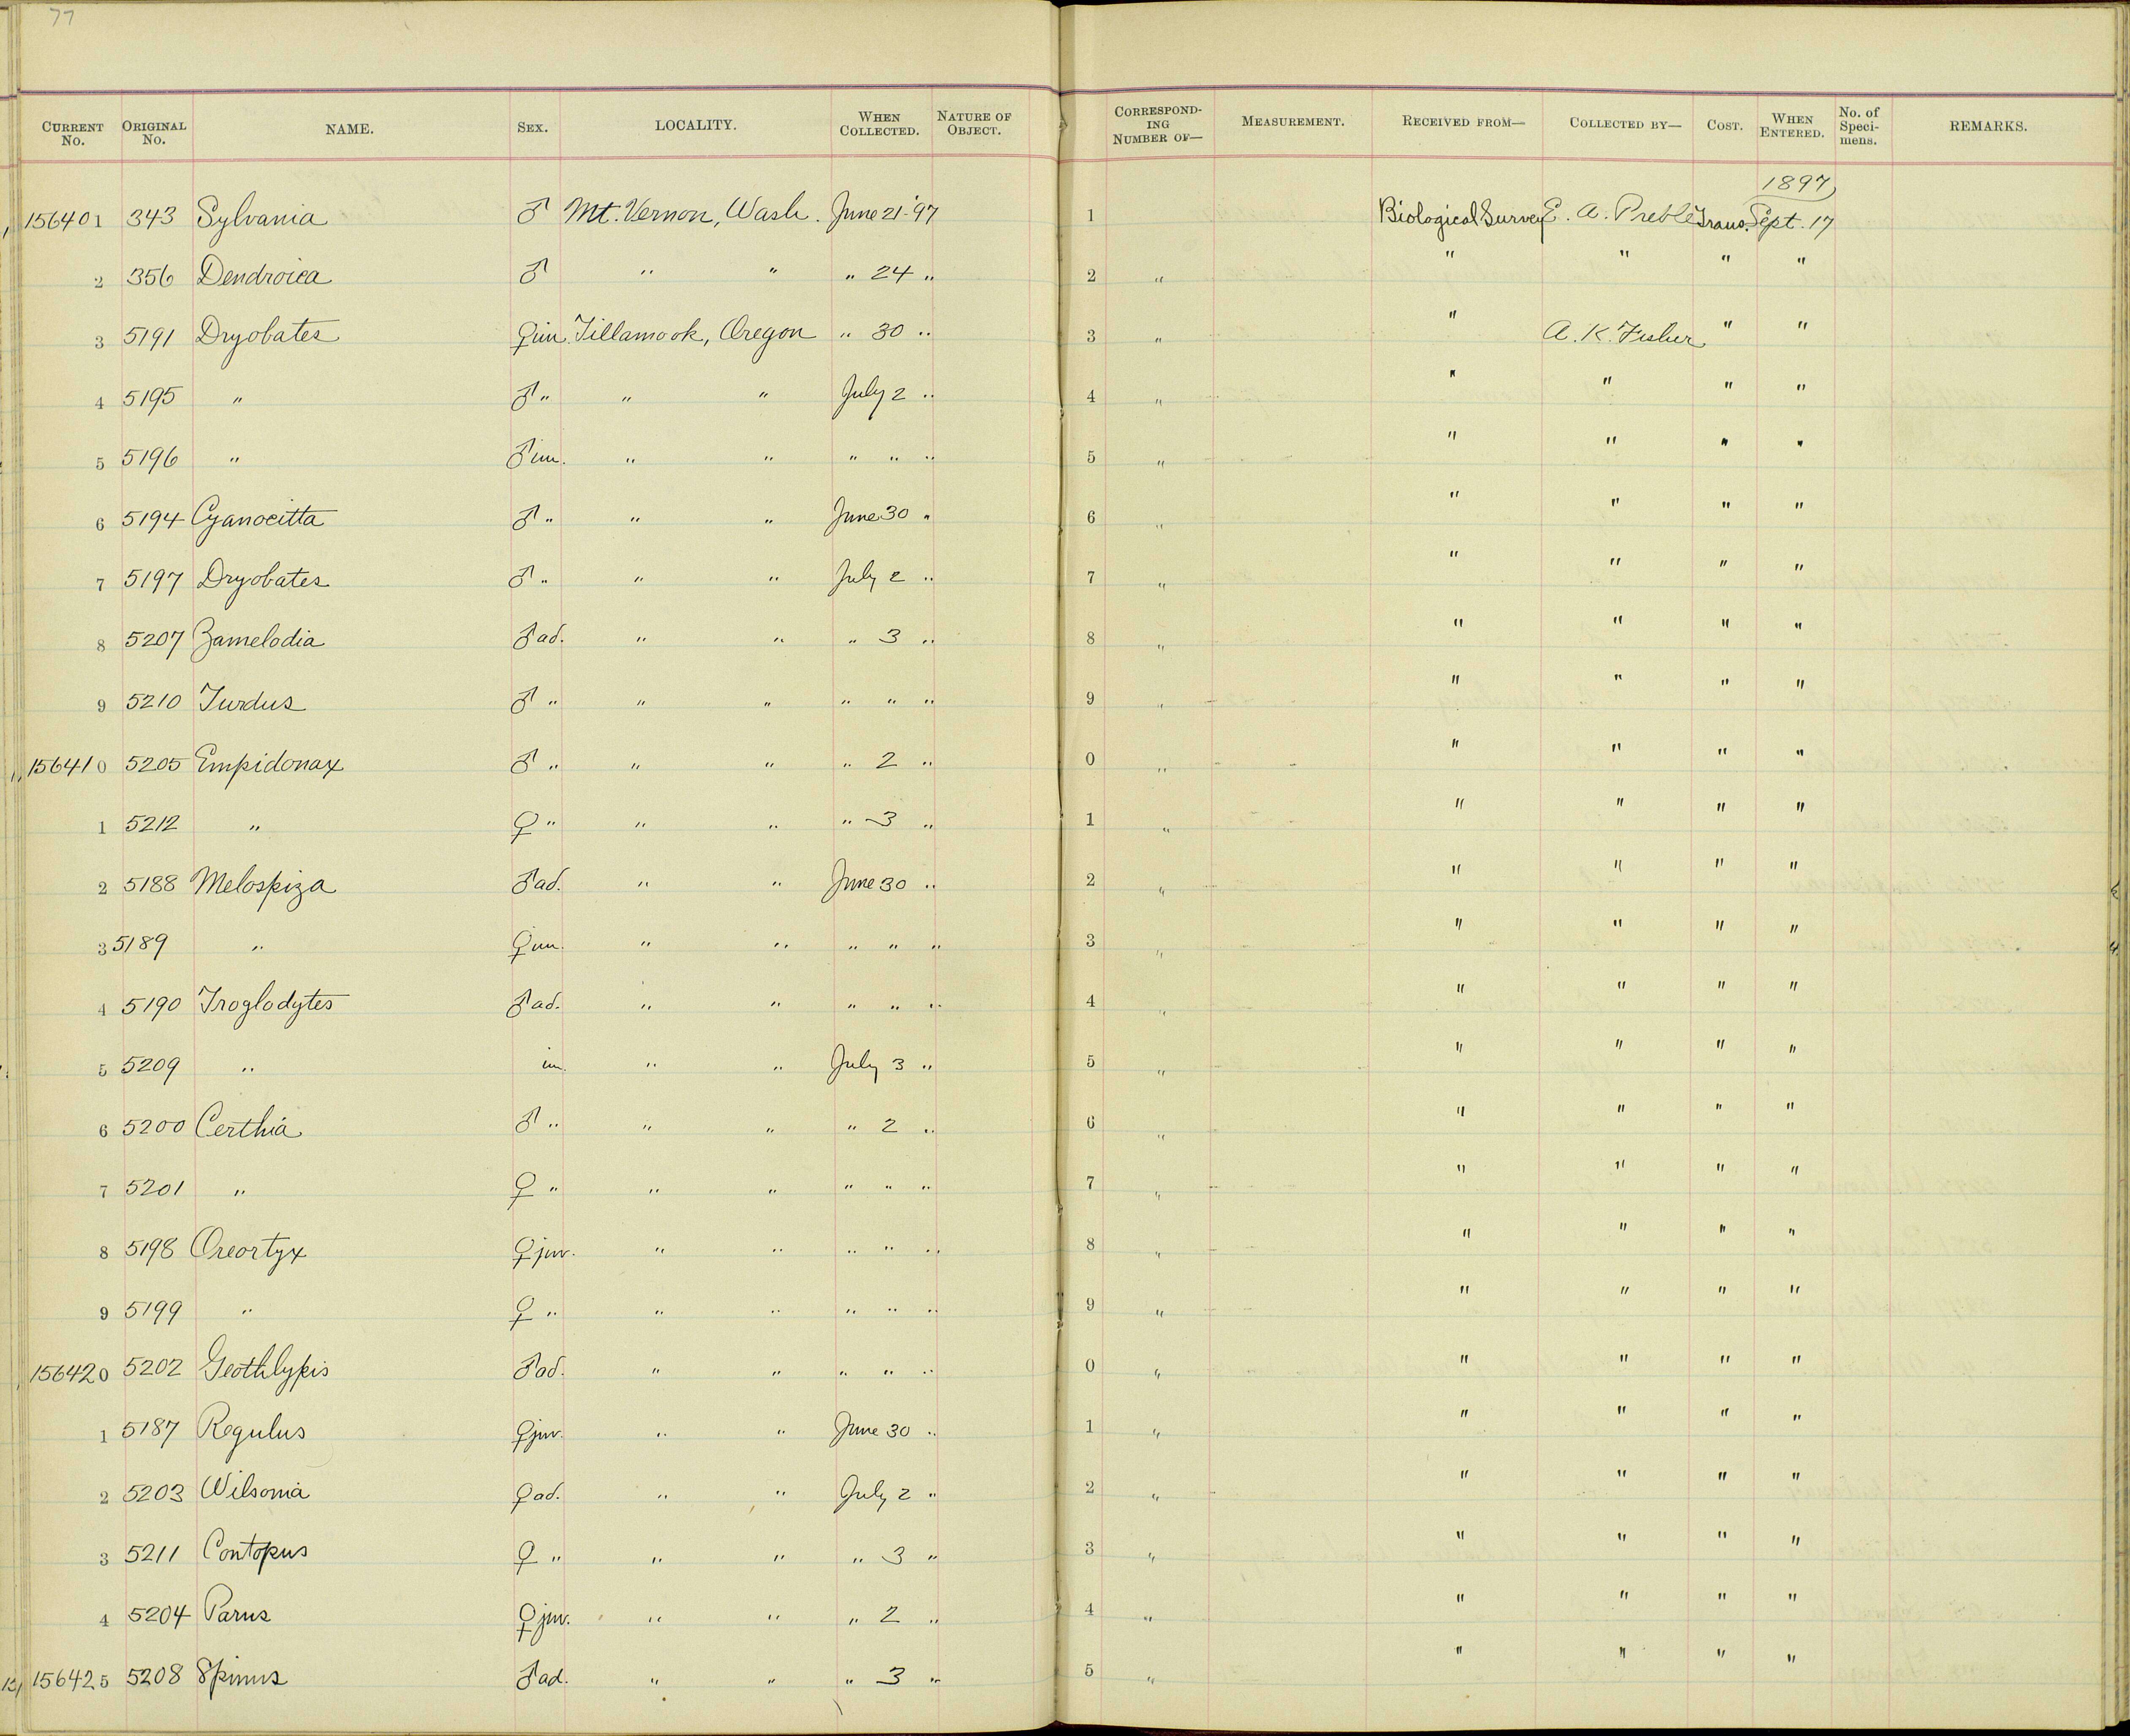 77
CURRENT No. ORIGINAL No. NAME. SEX. LOCALITY. WHEN COLLECTED. NATURE OF OBJECT. CORRESPOND-ING NUMBER OF— MEASUREMENT. RECEIVED FROM— COLLECTED BY— COST. WHEN ENTERED. No. of Speci-mens. REMARKS.
1897
156401 343 Sylvania ♂ Mt. Vernon, Wash. June 21-'97 1 Biological Survey E. A. Preble Trans. Sept. 17
2 356 Dendroica ♂ " " " 24 " 2 " " " " "
3 5191 Dryobates ♀ im. Tillamook, Oregon " 30 " 3 " " A. K. Fisher " "
4 5195 " ♂ " " " July 2 " 4 " " " " "
5 5196 " ♂ im. " " " " " 5 " " " " "
6 5194 Cyanocitta ♂ " " " June 30 " 6 " " " " "
7 5197 Dryobates ♂ " " " July 2 " 7 " " " " "
8 5207 Zamelodia ♂ ad. " " " 3 " 8 " " " " "
9 5210 Turdus ♂ " " " " " " 9 " " " " "
156410 5205 Empidonax ♂ " " " " 2 " 0 " " " " "
1 5212 " ♀ " " " " 3 " 1 " " " " "
2 5188 Melospiza ♂ ad. " " June 30 " 2 " " " " "
3 5189 " ♀ im. " " " " " 3 " " " " "
4 5190 Troglodytes ♂ ad. " " " " " 4 " " " " "
5 5209 " im. " " July 3 " 5 " " " " "
6 5200 Certhia ♂ " " " " 2 " 6 " " " " "
7 5201 " ♀ " " " " " " 7 " " " " "
8 5198 Oreortyx ♀ juv. " " " " " 8 " " " " "
9 5199 " ♀ " " " " " " 9 " " " " "
156420 5202 Geothlypis ♂ ad. " " " " " 0 " " " " "
1 5187 Regulus ♀ juv. " " June 30 " 1 " " " " "
2 5203 Wilsonia ♀ ad. " " July 2 " 2 " " " " "
3 5211 Contopus ♀ " " " " 3 " 3 " " " " "
4 5204 Parus ♀ juv. " " " 2 " 4 " " " " "
156425 5208 Spinus ♂ ad. " " " 3 " 5 " " " " "